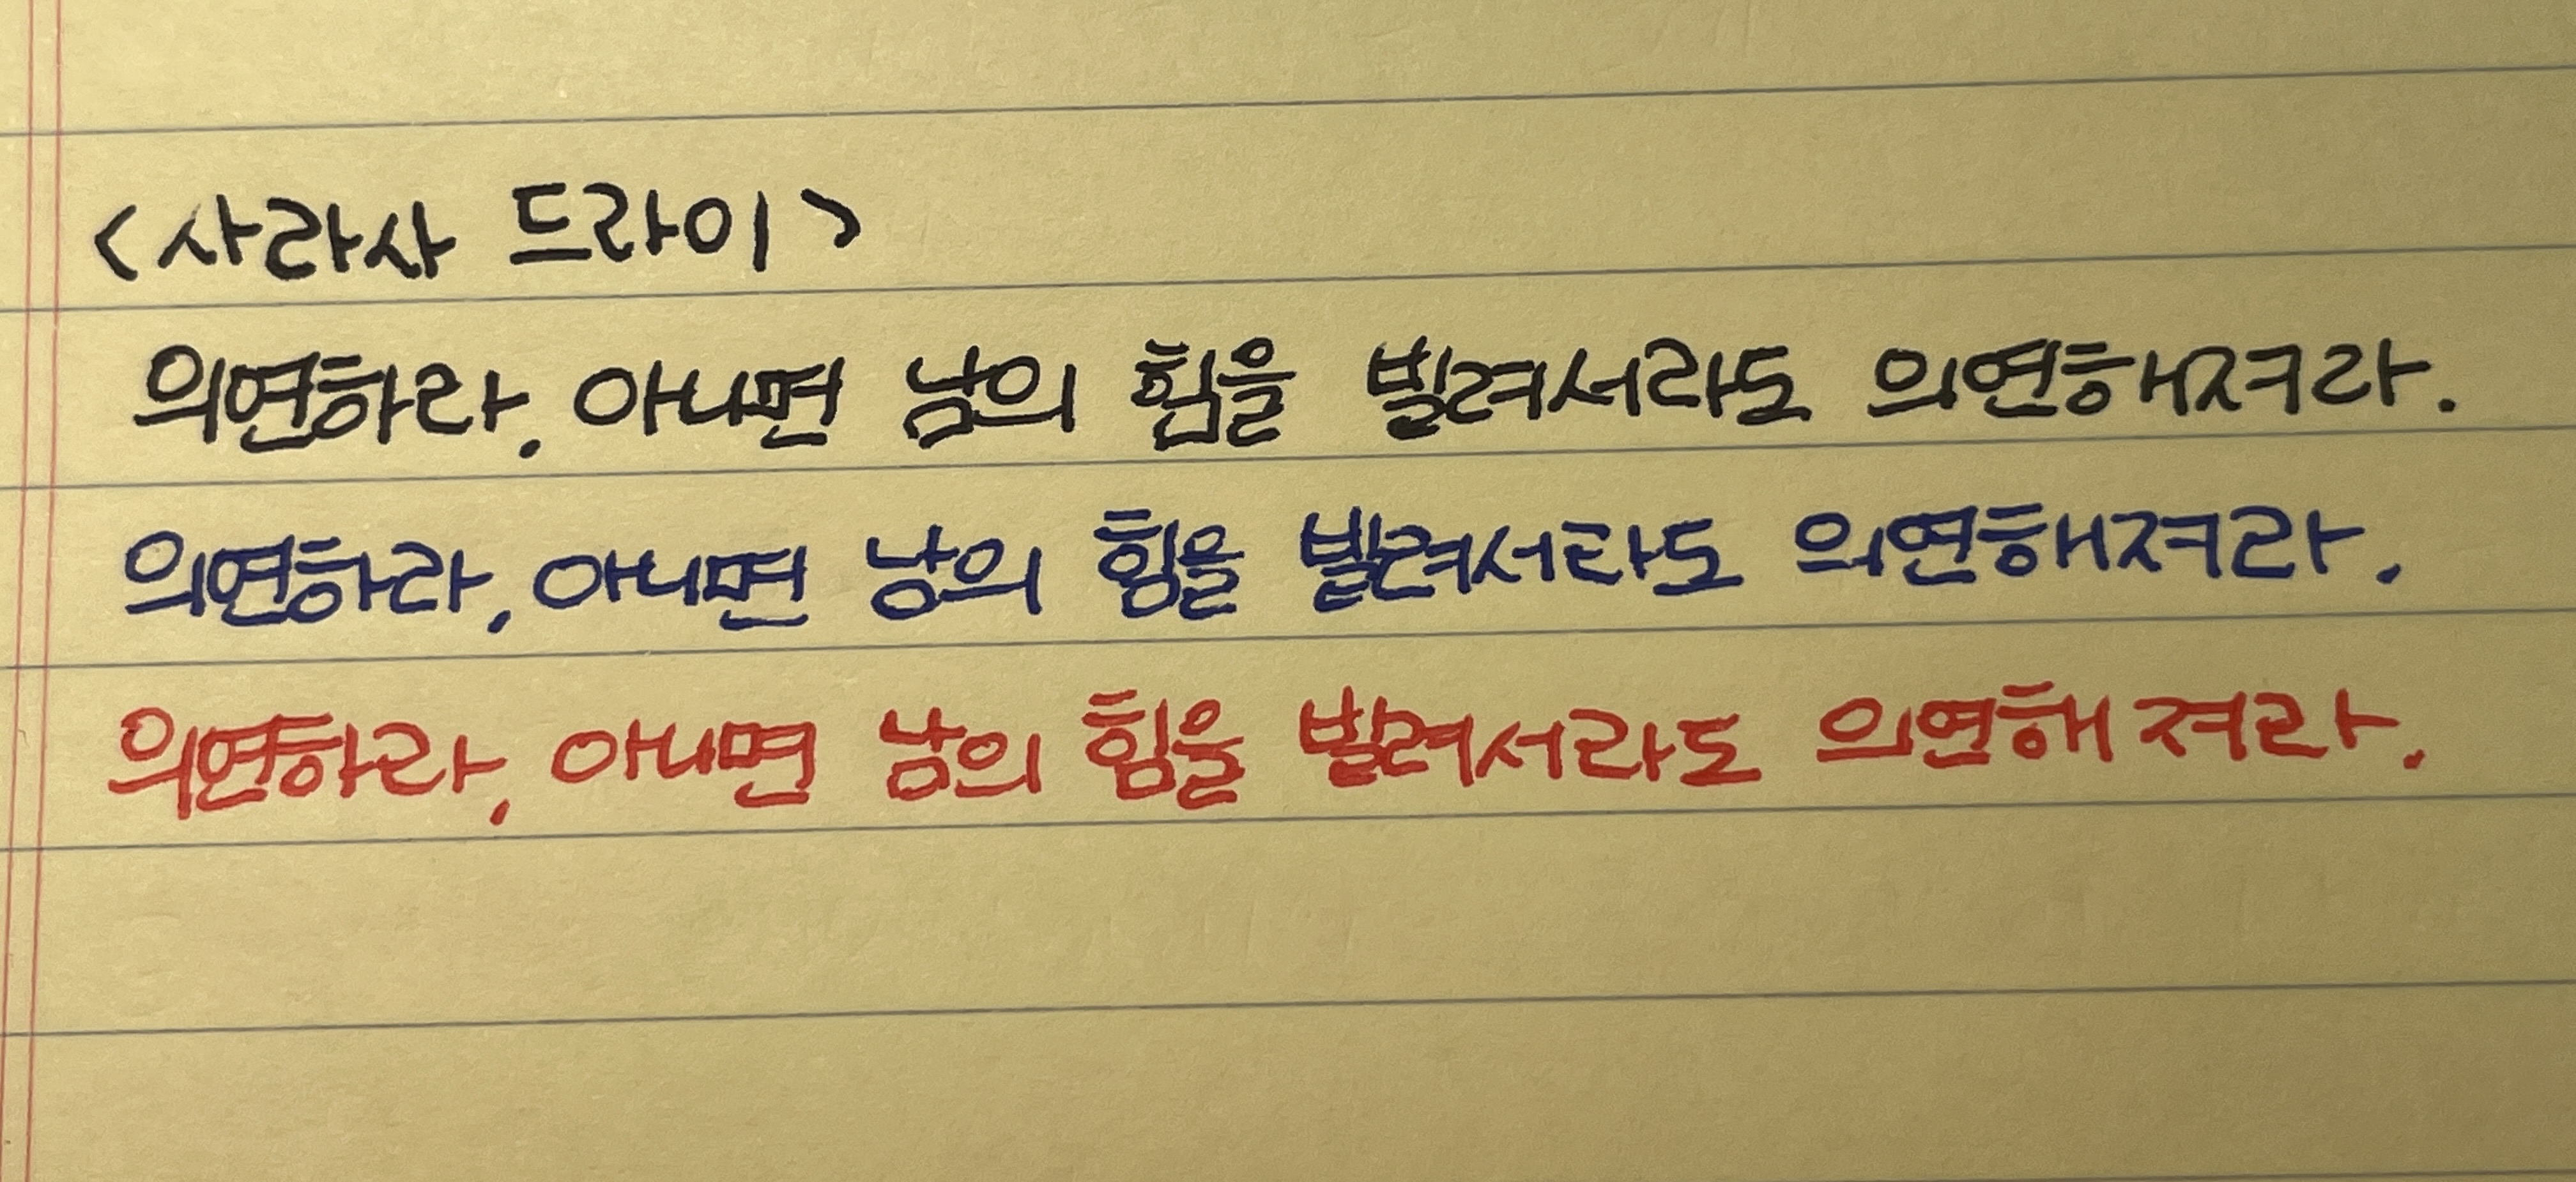 <사라사 드라이>
의연하라. 아니면 남의 힘을 빌려서라도 의연해져라.
의연하라. 아니면 남의 힘을 빌려서라도 의연해져라.
의연하라. 아니면 남의 힘을 빌려서라도 의연해져라.